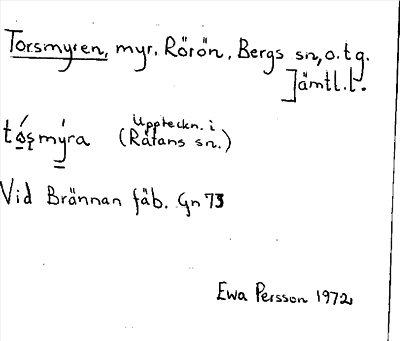 Torsmyren, myr. Rörön, Bergs sn, o.tg.
Jämtl.l.
tǿșmýra
(Uppteckn. i
Rätans sn.)
Vid Brännan fäb. Gn 73
Ewa Persson 1972